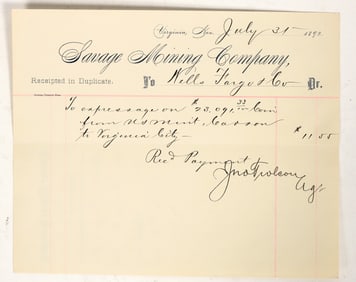 Virginia, Nev. July 31 189
Savage Mining Company,
Receipted in Duplicate. To Wells Fargo & Co Dr.
To expressage on $23,091.33 Coin
from US Mint, Carson
to Virginia City — $11 55
Recd Payment
Jno
Agt